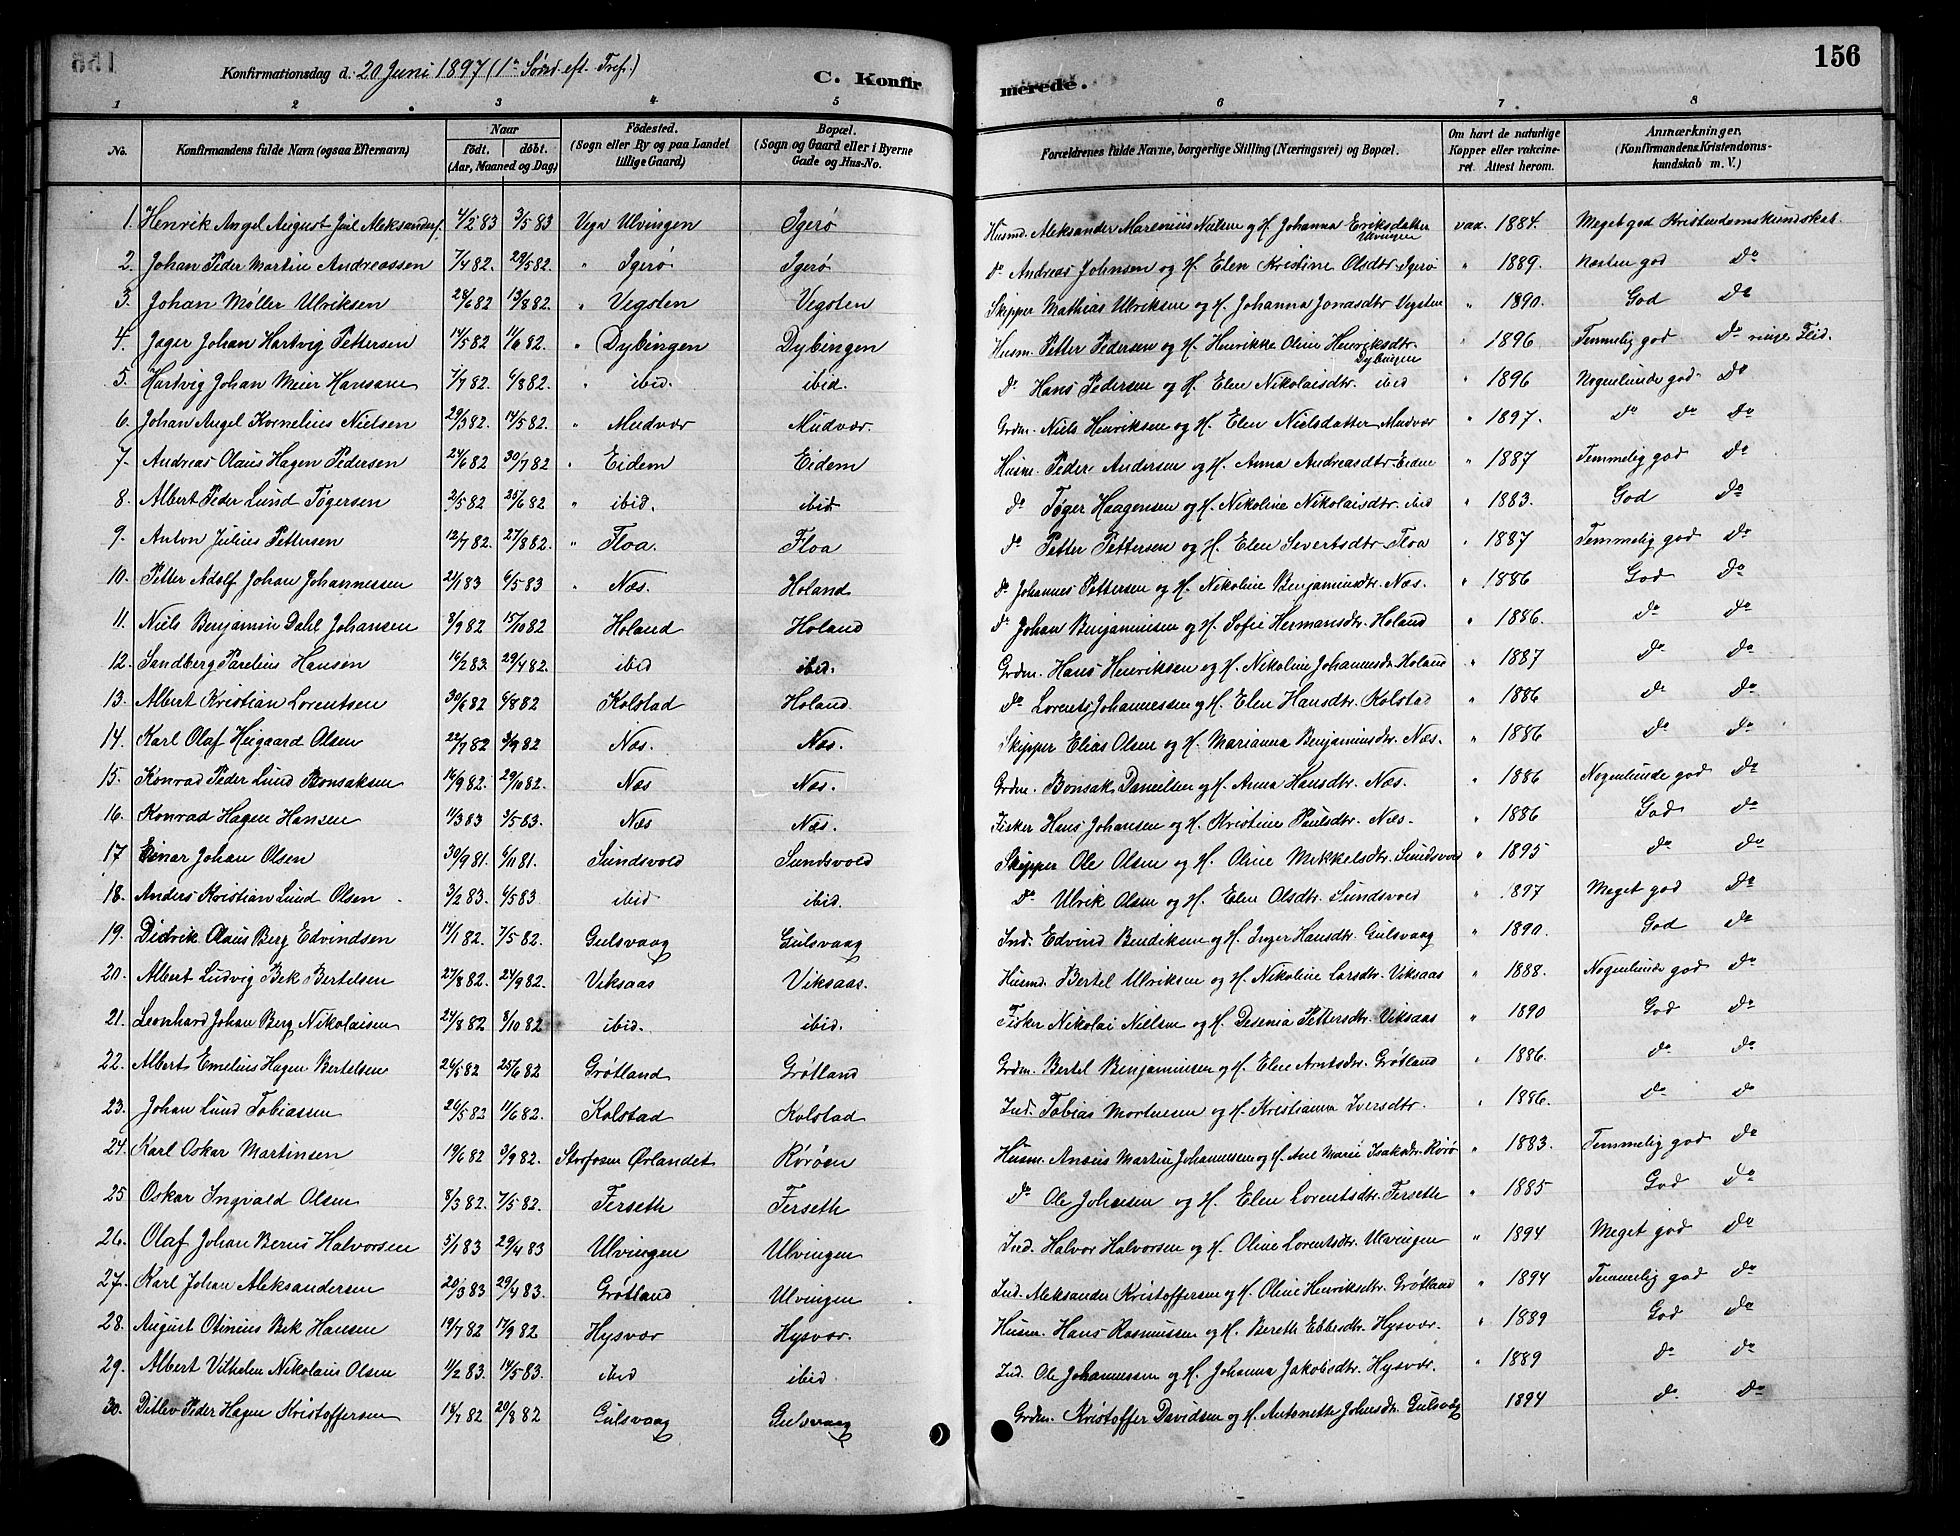 156
Konfirmationsdag d. 20 Juni 1897 (1ste Sønd. eft. Tref.) C. Konfirmerede.
1 2 3 4 5 6 7 8
No. Konfirmandens fulde Navn (ogsaa Efternavn) Naar født. døbt. (Aar, Maaned og Dag) Fødested. (Sogn eller By og paa Landet tillige Gaard) Bopæl. (Sogn og Gaard eller i Byerne Gade og Hus-No. Forældrenes fulde Navne, borgerlige Stilling (Næringsvei) og Bopæl. Om havt de naturlige Kopper eller vakcineret. Attest herom. Anmærkninger, (Konfirmandens Kristendomskundskab m. V.)
1. Henrik Angel August Juel Aleksanders. 4/2 83 3/5 83 Vega Ulvingen Igerø Husmd. Aleksander Marenius Nielsen og H. Johanna Eriksdatter Ulvingen vax. 1884. Meget god Kristendomskundskab.
2. Johan Peder Martin Andreassen 7/4 82. 29/5 82. " Igerø Igerø Do Andreas Johnsen og H. Elen Kristine Olsdtr. Igerø " 1889. Næsten god Do
3. Johan Møller Ulriksen 28/6 82 13/8 82. " Vegsten Vegsten Skipper Mathias Ulriksen og H. Johanna Jonasdtr Vegsten " 1890. God Do
4. Jager Johan Hartvig Pettersen 14/5 82 11/6 82. " Dybingen Dybingen Husm. Petter Pedersen og H. Henrikke Oline Henriksdtr. Dybingen " 1896 Temmelig god Do ringe Flid.
5. Hartvig Johan Meier Hansen 7/7 82. 6/8 82. " ibid. ibid. Do Hans Pedersen og H. Elen Nikolaisdtr. ibid " 1896 Nogenlunde god. Do
6. Johan Angel Kornelius Nielsen 29/3 82. 14/5 82. " Mudvær Mudvær. Grdm. Niels Henriksen og H. Elen Nielsdatter Mudvær " 1897. Do do Do
7. Andreas Olaus Hagen Pedersen 24/6 82 30/7 82 " Eidem Eidem Husm. Peder Andersen og H. Anna Andreasdtr. Eidem " 1887 Temmelig god Do
8. Albert Peder Lund Tøgersen 2/5 82 25/6 82 " ibid. ibid Do Tøger Haagensen og H. Nikoline Nikolaisdtr. ibid " 1883. God Do
9. Anton Julius Pettersen 12/7 82. 27/8 82. " Floa. Floa Do Petter Pettersen og H. Elen Sivertsdtr. Floa " 1887 Temmelig god Do
10. Petter Adolf Johan Johannesen 24/1 83 6/5 83 " Næs. Holand Do Johannes Pettersen og H. Nikoline Benjaminsdtr. Næs. " 1886 God Do
11. Niels Benjamin Dahl Johansen 3/9 82 15/10 82 Holand Holand Do Johan Benjaminsen og H. Sofie Hermansdtr. Holand " 1886. do do
12. Sandberg Parelius Hansen 16/2 83. 29/4 82. ibid ibid. Grdm. Hans Henriksen og H. Nikoline Johannesdr. Holand " 1887 do do
13. Albert Kristian Lorentsen 30/6 82 6/8 82 Kolstad Holand. Do Lorents Johannessen og H. Elen Hansdtr. Kolstad " 1886 do Do
14. Karl Olaf Heigaard Olsen 22/7 82 3/9 82 Næs. Næs. Skipper Elias Olsen og H. Marianna Benjaminsdtr. Næs. " 1886 do Do
15. Konrad Peder Lund Bonsaksen 16/9 82. 29/10 82. Næs Næs. Grdm. Bonsak Danielsen og H. Anna Hansdtr. Næs. " 1886 Nogenlunde god Do
16. Konrad Hagen Hansen 11/3 83 3/5 83. Næs Næs. Fisker Hans Johansen og H. Kristine Paulsdtr. Næs. " 1886 God do
17 Einar Johan Olsen 30/9 81. 6/11 81. Sundsvold Sundsvold Skipper Ole Olsen og H. Oline Mikkelsdtr. Sundsvold " 1895 do do
18. Anders Kristian Lund Olsen 3/2 83. 6/5 83 ibid ibid. Do Ulrik Olsen og H. Elen Olsdtr. Sundsvold " 1897 Meget god Do
19. Didrik Olaus Berg Edvindsen 14/1 82. 7/5 82. Gulsvaag Gulsvaag Ind. Edvind Bendiksen og H. Inger Hansdtr. Gulsvaag " 1890. God do
20. Albert Ludvig Bek Bertelsen 27/8 82. 24/9 82. Viksaas Viksaas. Husmd. Bertel Ulriksen og H. Nikoline Larsdtr. Viksaas " 1888. Nogenlunde god Do
21. Leonhard Johan Berg Nikolaisen 24/8 82 8/10 82 ibid. ibid. Fisker Nikolai Nielsen og H. Desenia Pettersdtr. Viksaas " 1890 God do
22. Albert Emelius Hagen Bertelsen 26/5 82 25/6 82 Grøtland Grøtland Grdm. Bertel Benjaminsen og H. Elen Arntsdtr. Grøtland " 1886. do do
23. Johan Lund Tobiassen 26/5 82 11/6 82. Kolstad Kolstad Ind. Tobias Mortensen og H. Kristianna Iversdtr. " 1886. do do
24. Karl Oskar Martinsen 19/6 82 3/9 82. Storfosen Ørlandet Rørøen Husm. Ansius Martin Johannesen og H. Ane Marie Isaksdr. Rørø " 1883. Temmelig god do
25 Oskar Ingvald Olsen 8/3 82. 7/5 82. Ferseth Ferseth Do Ole Johnsen og H. Elen Lorentsdtr. Ferseth " 1885 God do
26. Olaf Johan Berus Halvorsen 5/1 83 29/4 83 Ulvingen Ulvingen Ind. Halvor Halvorsen og H. Oline Lorentsdtr. Ulvingen " 1894 Meget god do
27. Karl Johan Aleksandersen 20/3 83 29/4 83. Grøtland Ulvingen Ind. Aleksander Kristoffersen og H. Oline Henriksdtr. Grøtland " 1894 Temmelig god do
28. August Otinius Bek Hansen 19/7 82 17/9 82 Hysvær Hysvær. Husm. Hans Rasmussen og H. Bereth Ebbesdtr. Hysvær. " 1889 God do
29. Albert Vilhelm Nikolaus Olsen 11/2 83. 14/5 83. ibid ibid. Ind. Ole Johannessen og H. Johanna Jakobsdtr. Hysvær. " 1889 do do
30. Ditlev Peder Hagen Kristoffersen 14/7 82 20/8 82 Gulsvaag Gulsvaag Grdm. Kristoffer Davidsen og H. Antonette Johnsdr. Gulsvåg 1894 do. do